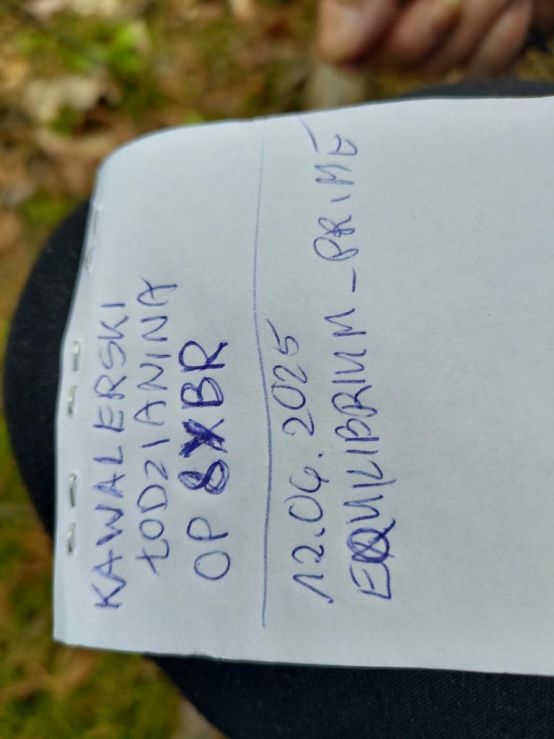 KAWALERSKI
ŁODZIANINA
OP 8XBR
12.04.2025
EQUILIBRIUM_PRIME